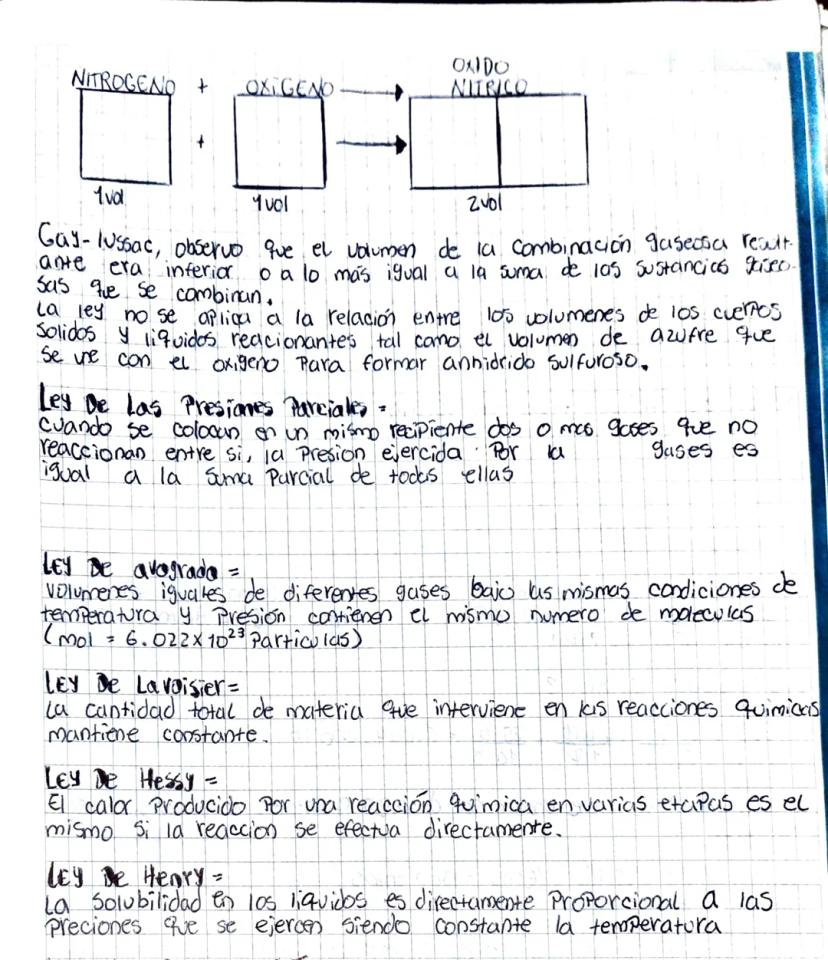 OXIDO
NITROGENO + OXIGENO NITRICO
+
1vol 1vol 2vol
Gay-lussac, observo que el volumen de la combinación gaseosa result-
ante era inferior o a lo más igual a la suma de las sustancias gaseo-
sas que se combinan.
La ley no se aplica a la relación entre los volumenes de los cuerpos
solidos y liquidos reaccionantes tal como el volumen de azufre que
se une con el oxigeno para formar anhidrido sulfuroso.
Ley De Las Presiones Parciales =
cuando se colocan en un mismo recipiente dos o mas gases que no
reaccionan entre si, la presion ejercida por la gases es
igual a la suma parcial de todas ellas
Ley De avogrado =
volumenes iguales de diferentes gases bajo las mismas condiciones de
temperatura y presión contienen el mismo numero de moleculas
(mol = 6.022x10²³ particulas)
Ley De Lavoisier =
La cantidad total de materia que interviene en las reacciones quimicas
mantiene constante.
Ley De Hessy =
El calor producido por una reacción quimica en varias etapas es el
mismo si la reaccion se efectua directamente.
Ley De Henry =
La solubilidad en los liquidos es directamente proporcional a las
preciones que se ejercen siendo constante la temperatura